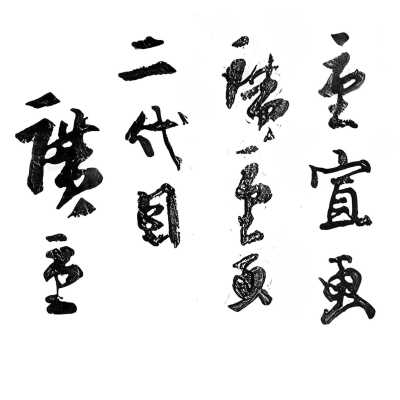 重宣画
廣重画
二代目
廣重